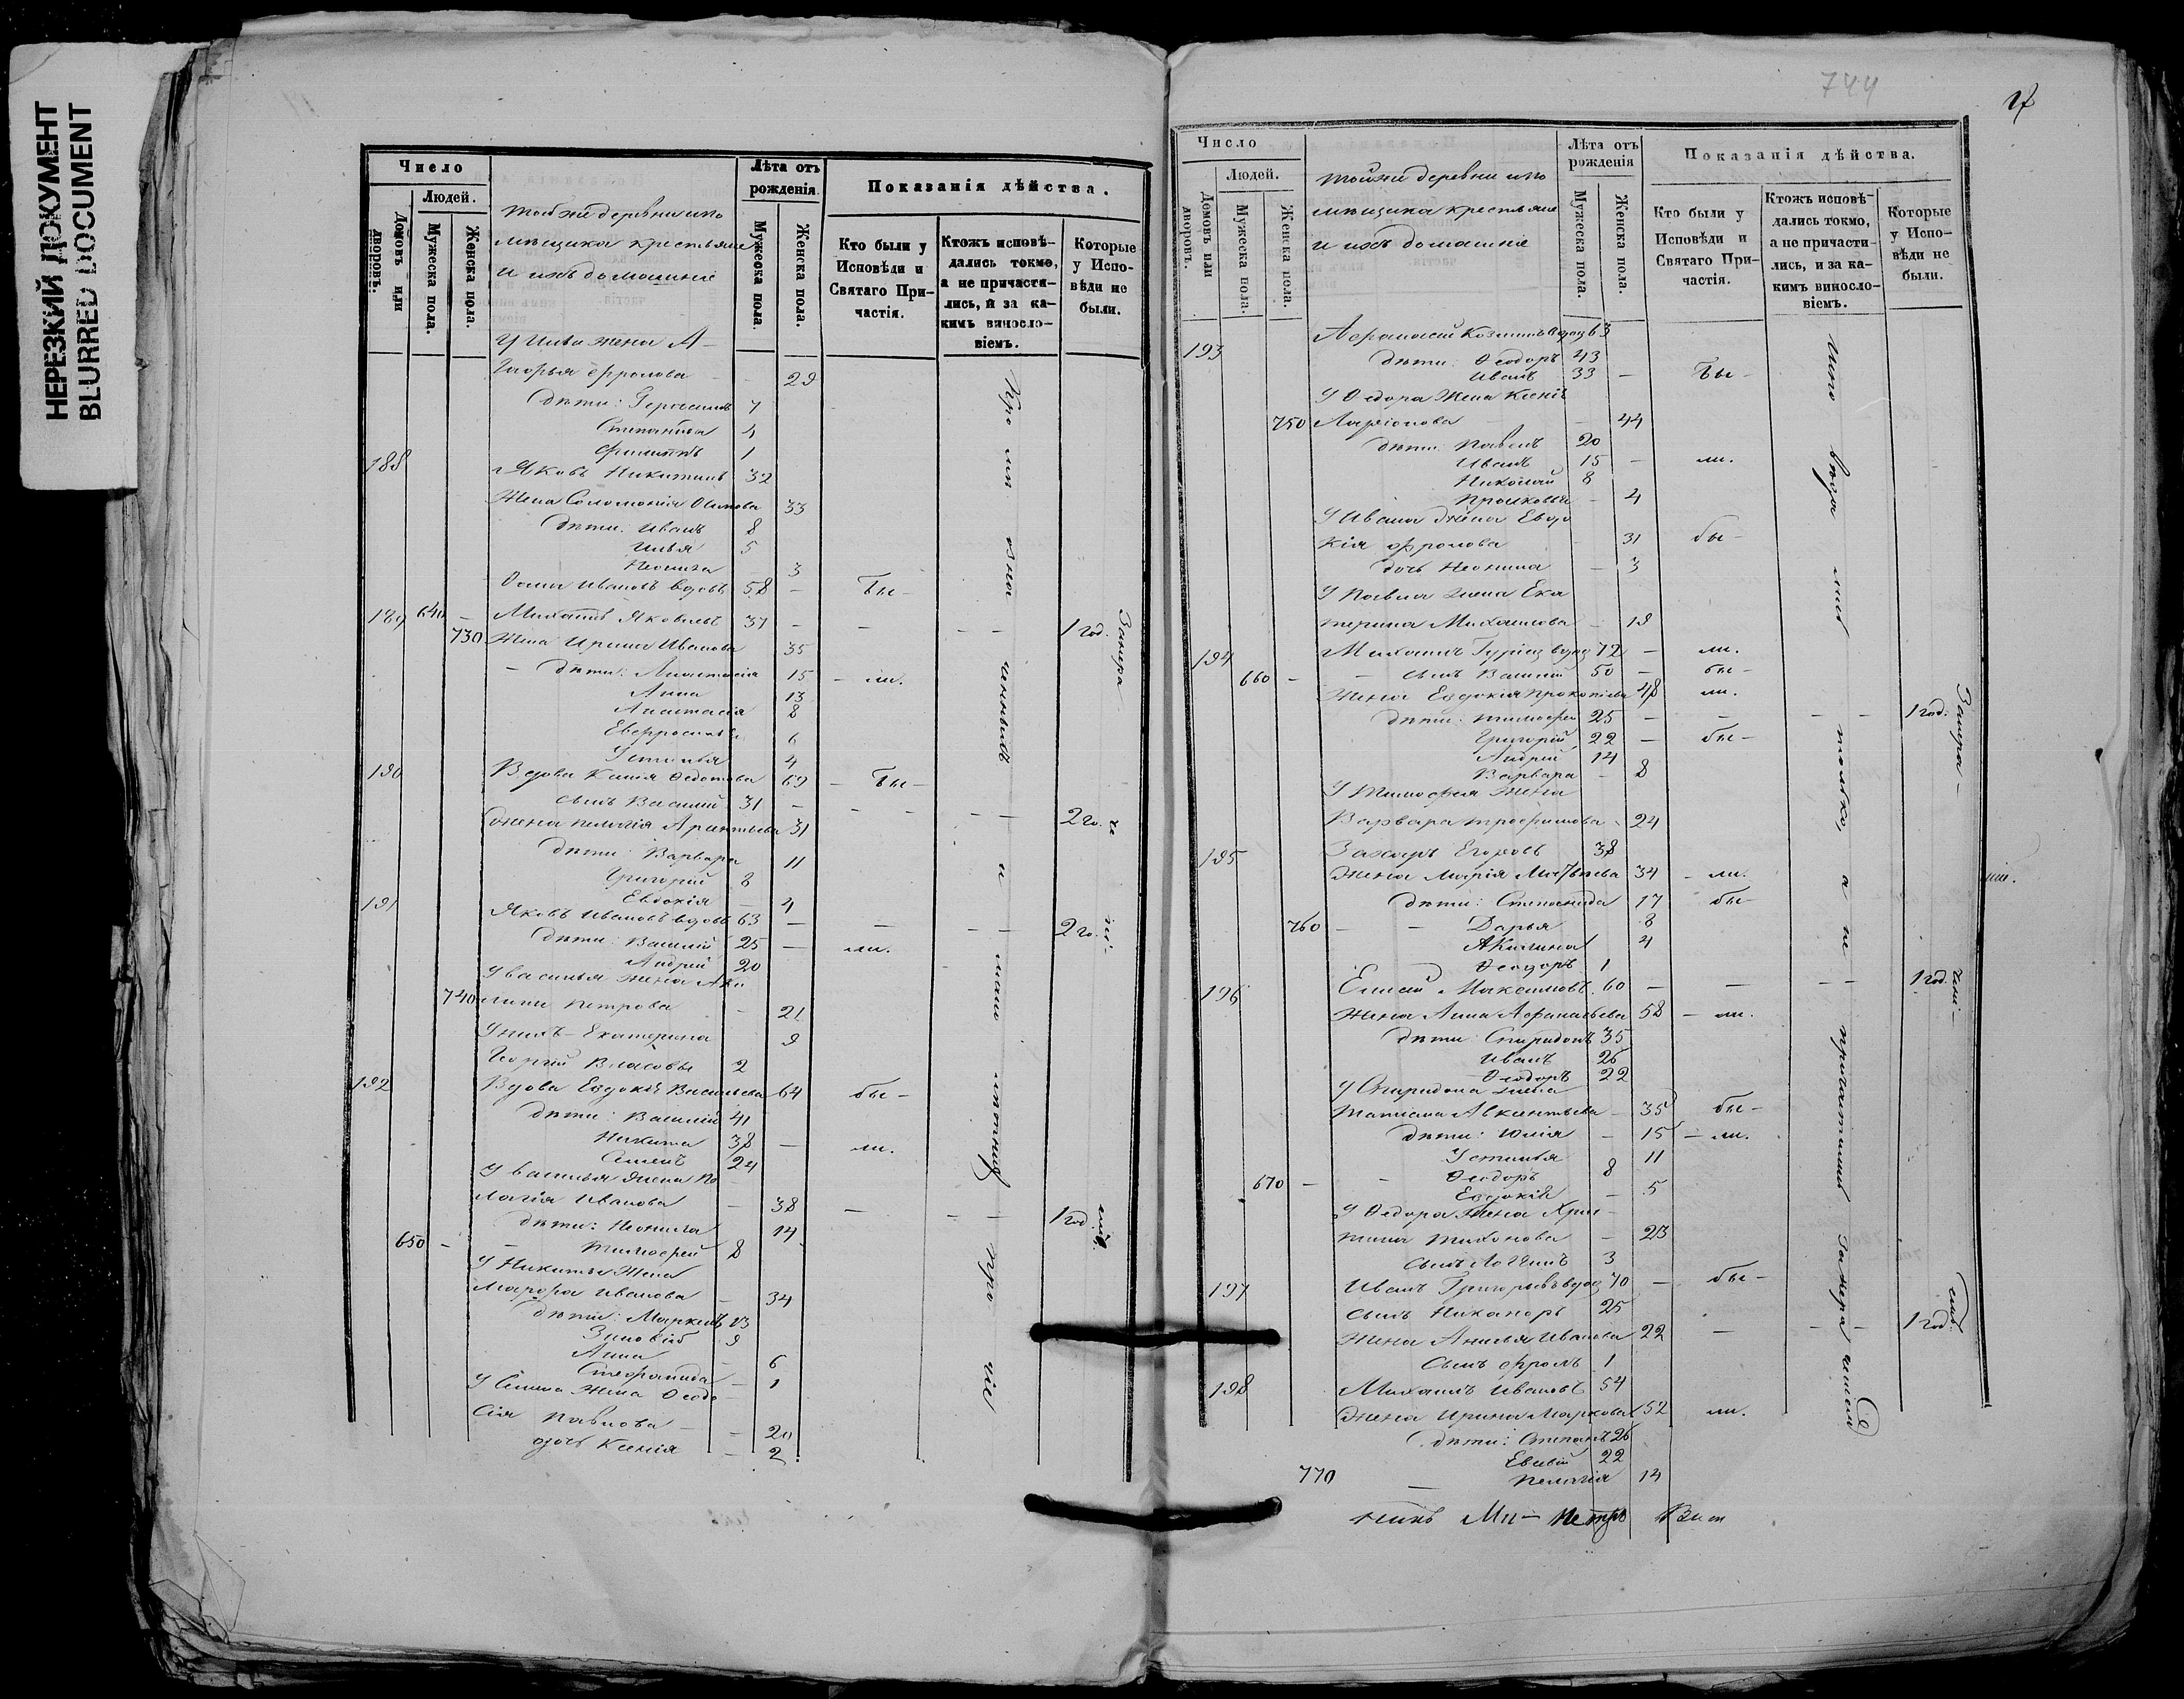 НЕРЕЗКИЙ ДОКУМЕНТ
BLURRED DOCUMENT
Число
Людей.
Домовъ или дворовъ.
Мужеска пола.
Женска пола.
Той же деревни и по
мѣщика крестьяне
и ихъ домашние
Лѣта отъ рождения.
Мужеска пола.
Женска пола.
Показанія дѣйства.
Кто были у Исповѣди и Святаго При-частія.
Ктожъ исповѣ-дались токмо, а не причасти-лись, и за ка-кимъ винословіемъ.
Которые у Испо-вѣди не были.
У Ильи жена
Фролова - - 29
Дѣти: Герасимъ 7
4
Филиппъ 1
188 Яковъ Никитинъ 32
Жена Соломонія Осипова 33
Дѣти: Иванъ 8
Илья 5
Неонила 3
Ѳома Ивановъ вдовъ 58 - Бы-
189 640 - Михаилъ Яковлевъ 37 - - - - 1 год.
730 Жена Ирина Иванова 35
- Дѣти: Анастасія 15 - ли.
Анна 13
Анастасія 8
6
Устинья 4
190 Вдова Ксенія Ѳедотова 69 - Бы-
сынъ Василій 31 - - - - 2 го.
Жена Пелагія 31
Дѣти: Варвара 11
Григорій 8
Евдокія 4
191 Яковъ Ивановъ вдовъ 63 - - - - 2 го.
Дѣти: Василій 25 - ли.
Андрей 20
У Василья жена Аку
740 лина Петрова - 21
У нихъ - Екатерина 9
Георгій Власовы 2
192 Вдова Евдокія Васильева 64 бы-
Дѣти: Василій 41
Никита 38 - ли.
Семенъ 24
У Василья жена Пе
лагія Иванова - 38 - - - 1 год.
Дѣти: Неонила 14
650 - Тимоѳей 8
У Никиты жена
Марфа Иванова - 34
Дѣти: Маркелъ 13
Зиновій 9
Анна - 6
Стефанида - 1
У Семена жена Ѳеодо
сія Павлова - - 20
дочь Ксенія - 2
744
17
Число
Людей.
Домовъ или дворовъ.
Мужеска пола.
Женска пола.
Той же деревни и по
мѣщика крестьяне
и ихъ домашние
Лѣта отъ рождения
Мужеска пола.
Женска пола.
Показанія дѣйства.
Кто были у Исповѣди и Святаго При-частія.
Ктожъ исповѣ-дались токмо, а не причасти-лись, и за ка-кимъ винословіемъ.
Которые у Испо-вѣди не были.
193 Афанасій Козминъ вдовъ 63
Дѣти: Ѳеодоръ 43
Иванъ 33 - Бы-
У Ѳедора жена Ксенія
750 Ларіонова - 44
Дѣти: Павелъ 20
Иванъ 15 - ли.
Николай 8
Прасковья - 4
У Ивана жена Евдо
кія Фролова - 31 бы-
Дочь Неонила - 3
У Павла жена Ека
терина Михаилова - 19
194 Михаилъ вдовъ 72 - ли.
660 - - сынъ Василій 50 - бы-
Жена Евдокія Прокопіева 48 ли.
Дѣти: Тимоѳей 25 - - - - 1 год.
Григорій 22 - бы-
Андрей 14
Варвара - 8
У Тимоѳея жена
Варвара Трофимова - 24
195 Захаръ Егоровъ 38
Жена Марія Матвѣева 34 - ли.
Дѣти: Степанида 17 бы-
760 - - Дарья 8
Акилина 4
Ѳеодоръ 1
196 Елисей Максимовъ 60 - - - - 1 год.
Жена Анна Афанасьева 58 - ли.
Дѣти: Спиридонъ 35
Иванъ 26
Ѳеодоръ 22
У Спиридона жена
Татиана Авксентьева - 35 бы-
Дѣти: Юлія - 15 - ли.
Устинья 11
670 - - Ѳеодоръ 8
Евдокія - 5
У Ѳедора жена Хри-
тина Тихонова - 23
сынъ Логгинъ 3
197 Иванъ Григорьевъ вдов 70 - бы-
сынъ Никаноръ 25
Жена Анисья Иванова 22 - - - 1 год.
Сынъ Фролъ 1
198 Михаилъ Ивановъ 54
Жена Ирина Маркова 52 ли.
Дѣти: Степанъ 26
22
770 - Пелагія 14